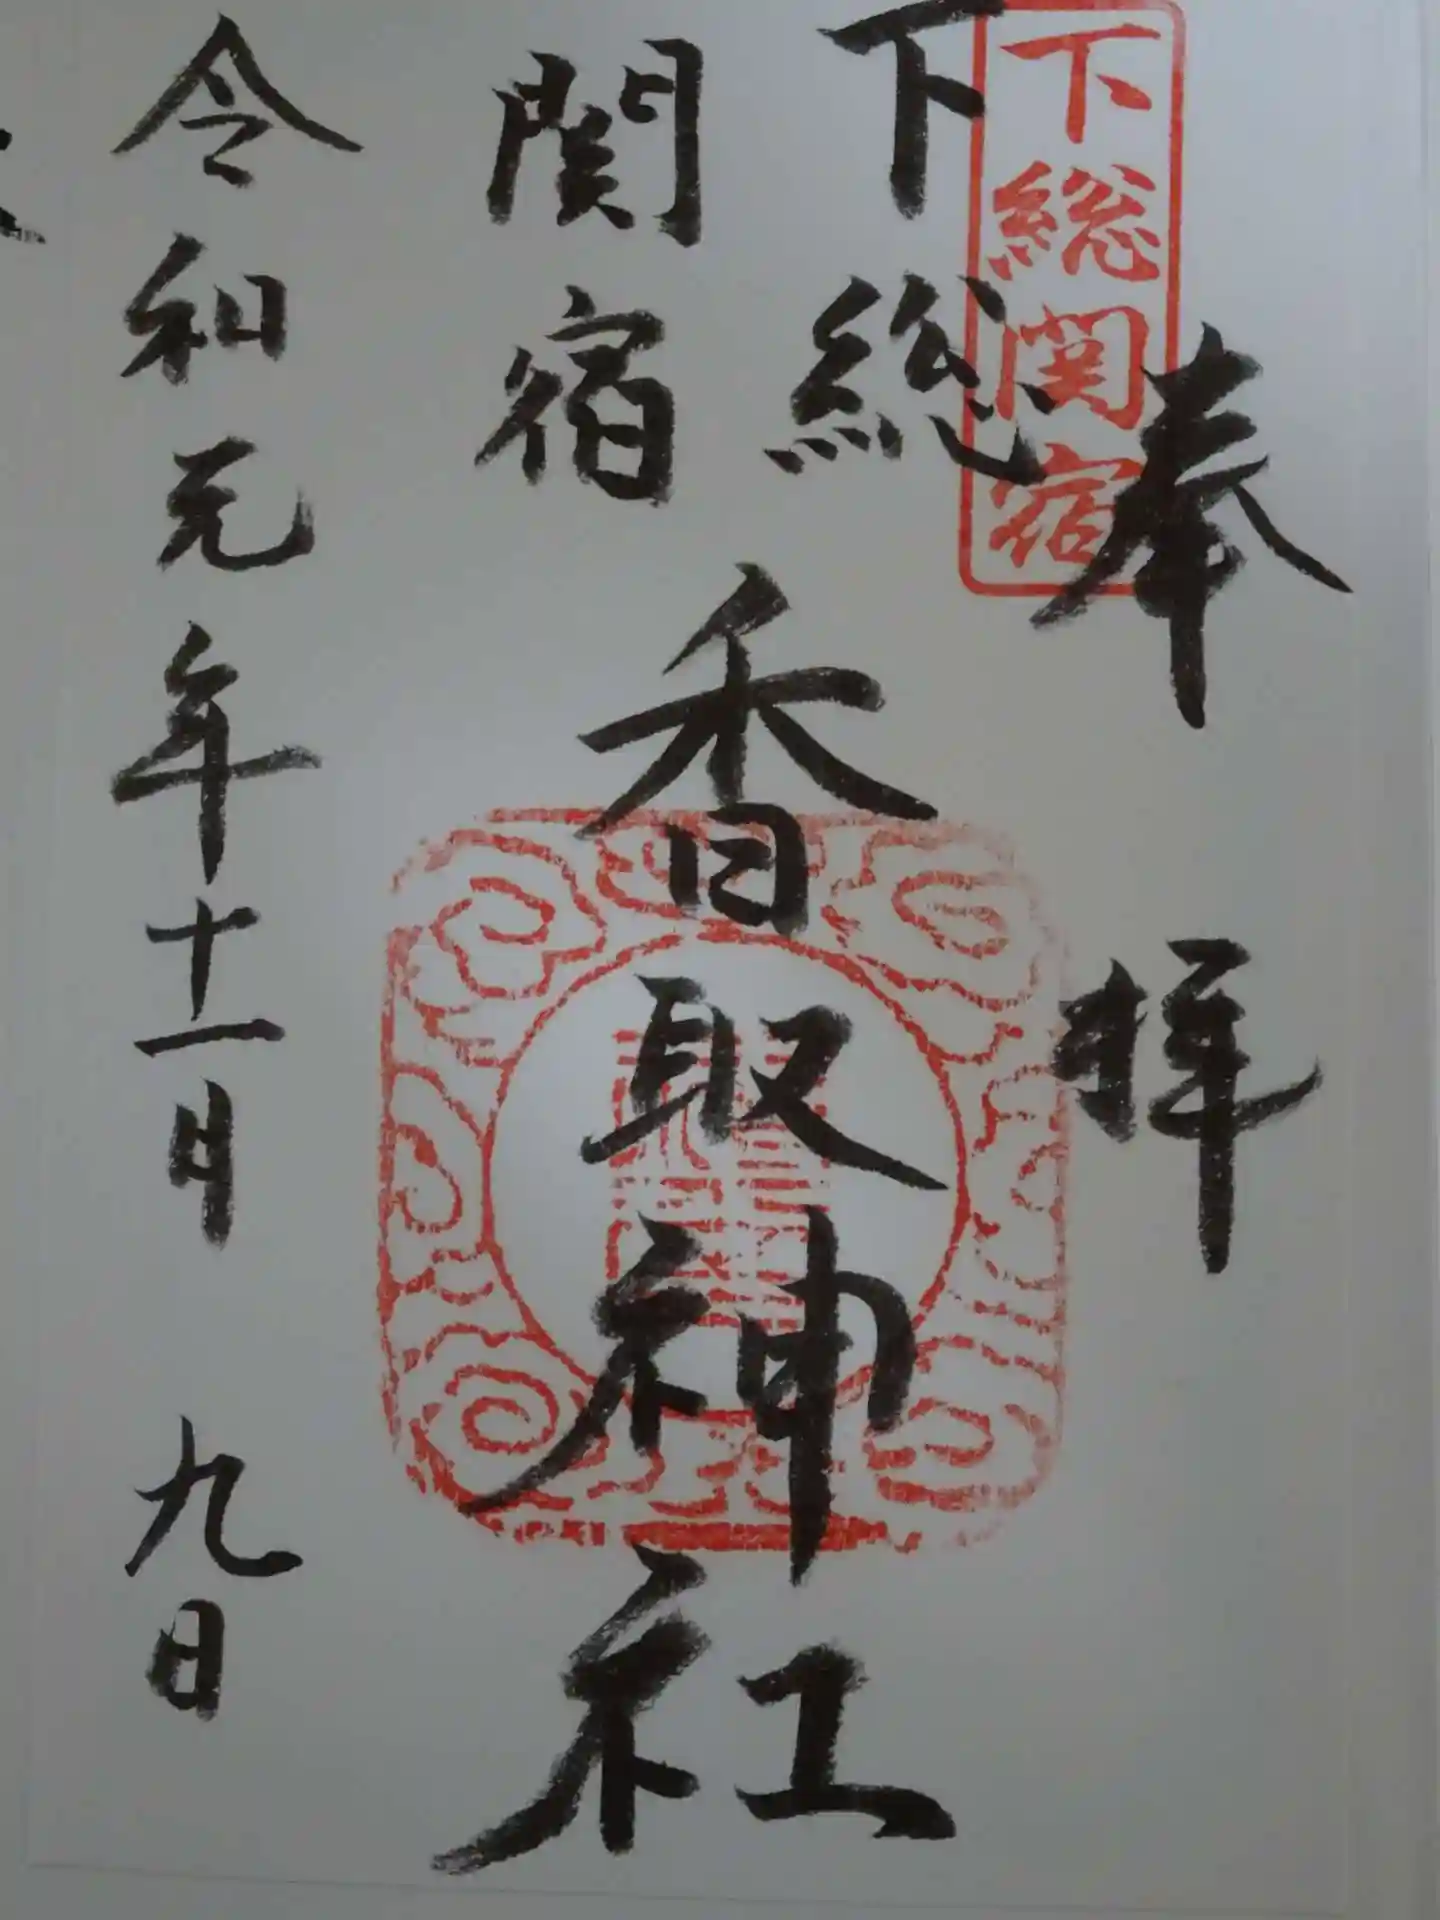 下総関宿
奉拝
下総
関宿
香取神社
令和元年十一月九日